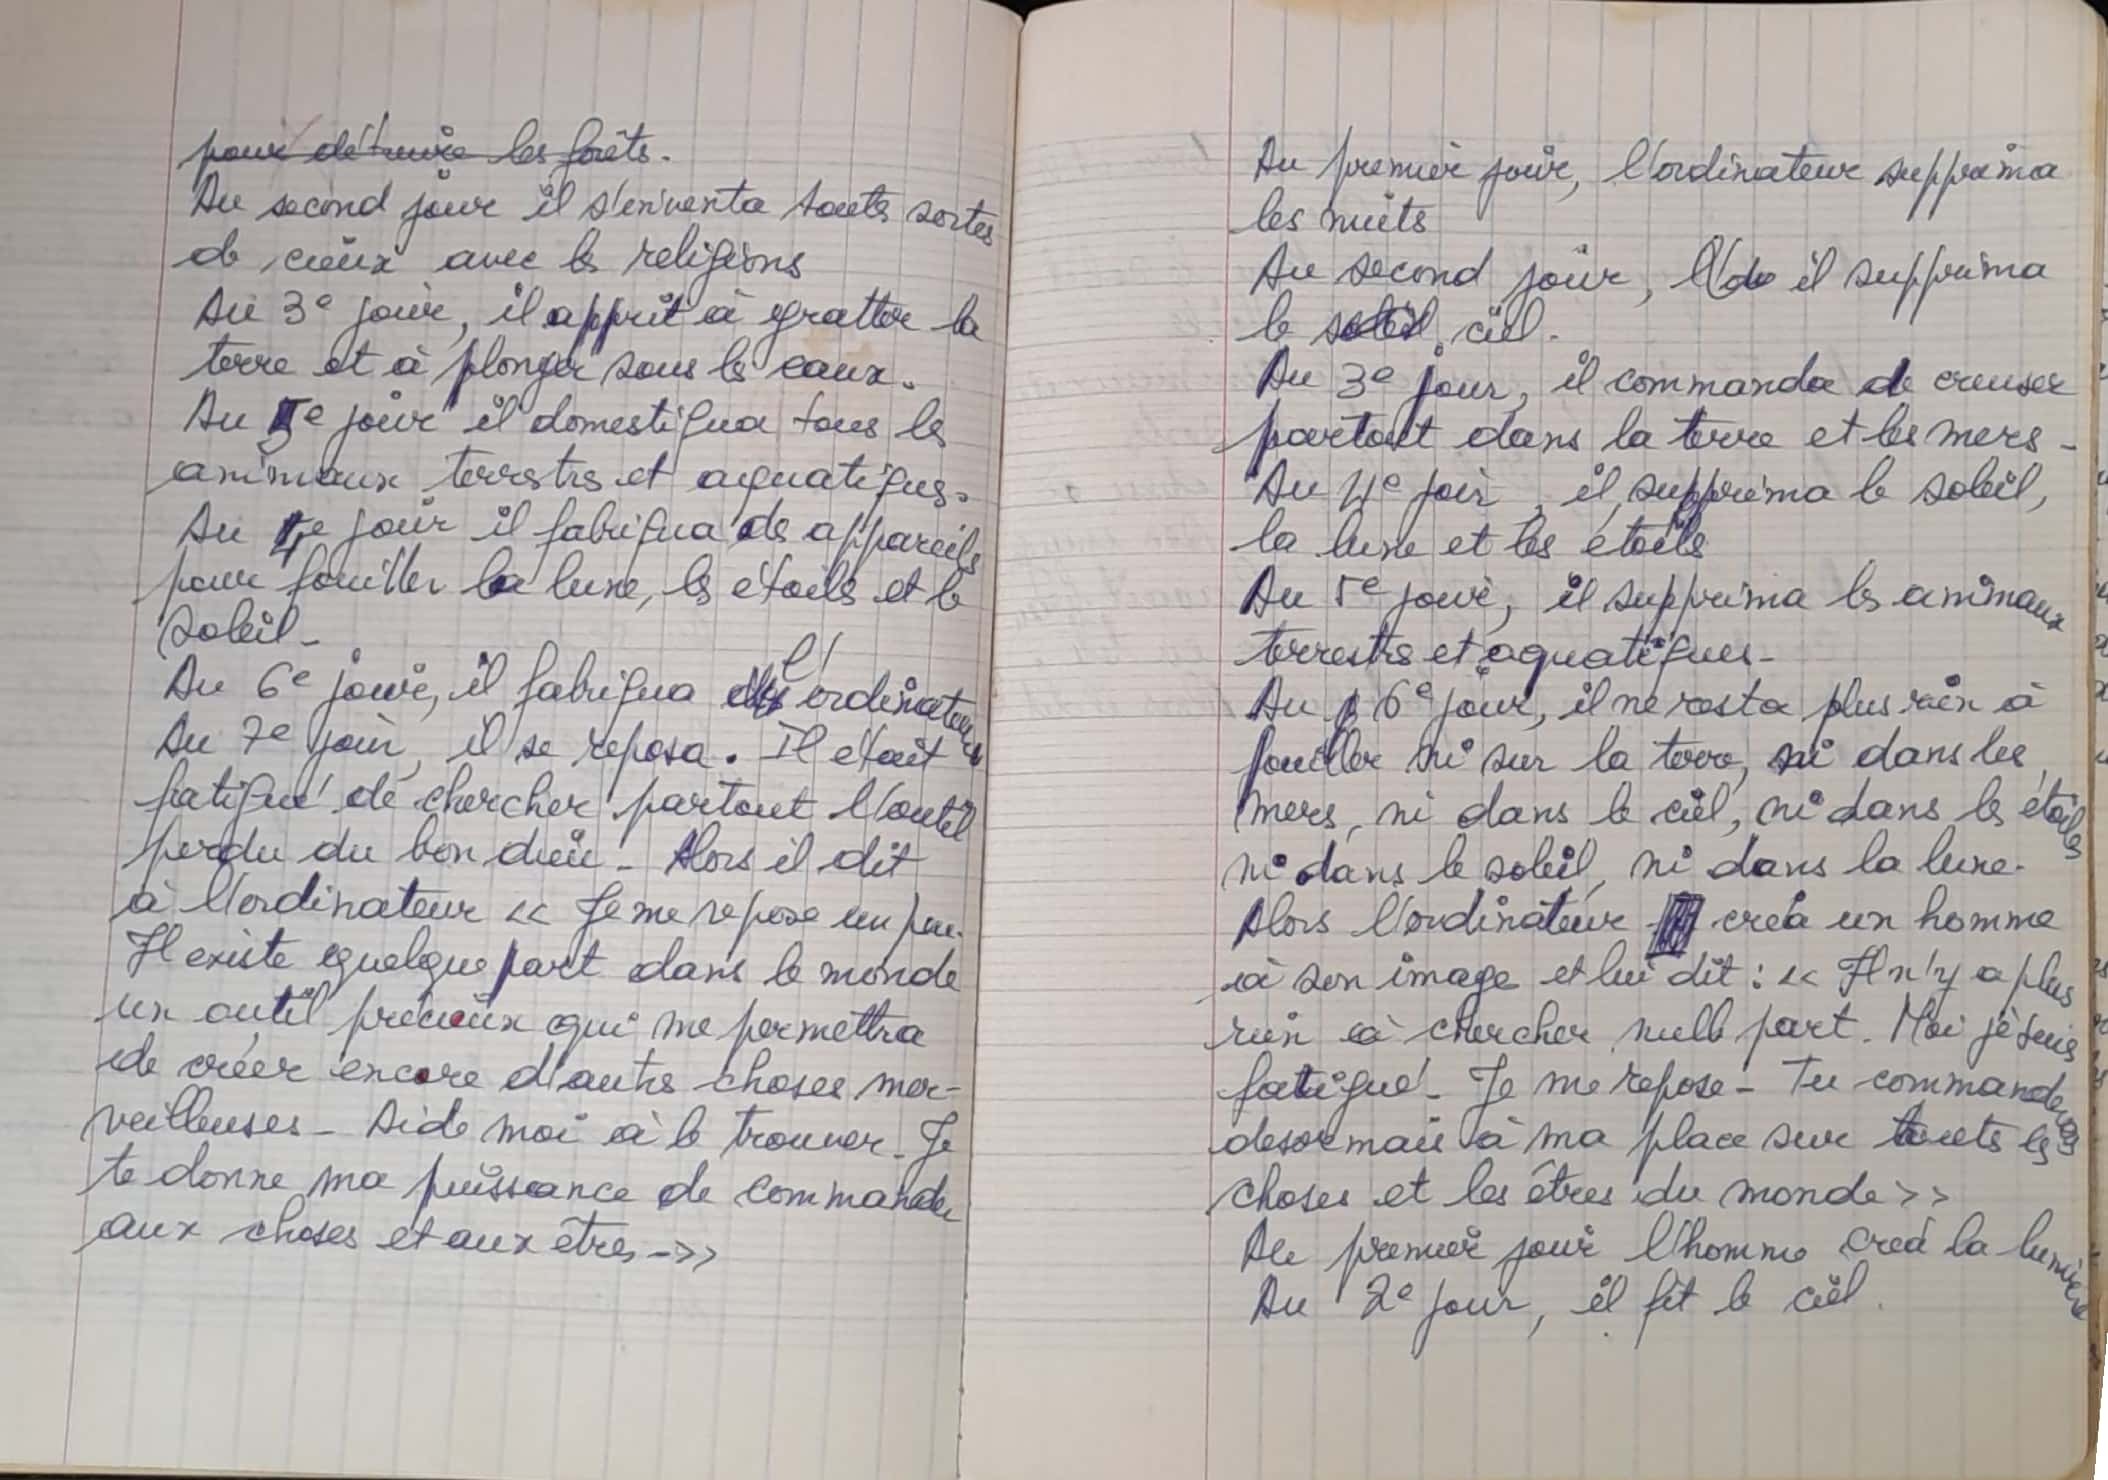 pour détruire les forêts.
Au second jour il s'inventa toutes sortes
de cieux avec les religions
Au 3e jour, il apprit à gratter la
terre et à plonger sous les eaux.
Au 5e jour il domestiqua tous les
animaux terrestres et aquatiques.
Au 4e jour il fabriqua des appareils
pour fouiller la lune, les étoiles et le
soleil -
Au 6e jour, il fabriqua l'ordinateur
Au 7e jour, il se reposa. Il était
fatigué de chercher partout l'outil
perdu du bon dieu - Alors il dit
à l'ordinateur << Je me repose un peu.
Il existe quelque part dans le monde
un outil précieux qui me permettra
de créer encore d'autres choses mer-
veilleuses - Aide moi à le trouver - Je
te donne ma puissance de commander
aux choses et aux êtres - >>
Au premier jour, l'ordinateur supprima
les nuits
Au second jour, il supprima
le soleil ciel.
Au 3e jour, il commanda de creuser
partout dans la terre et les mers -
Au 4e jour, il supprima le soleil,
la lune et les étoiles
Au 5e jour, il supprima les animaux
terrestres et aquatiques -
Au 6e jour, il ne resta plus rien à
fouiller ni sur la terre, ni dans les
mers, ni dans le ciel, ni dans les étoiles
ni dans le soleil, ni dans la lune.
Alors l'ordinateur créa un homme
à son image et lui dit : << Il n'y a plus
rien à chercher nulle part. Moi je suis
fatigué - Je me repose - Tu commanderas
desormais à ma place sur toutes les
choses et les êtres du monde >>
Au premier jour l'homme créa la lumière
Au 2e jour, il fit le ciel.